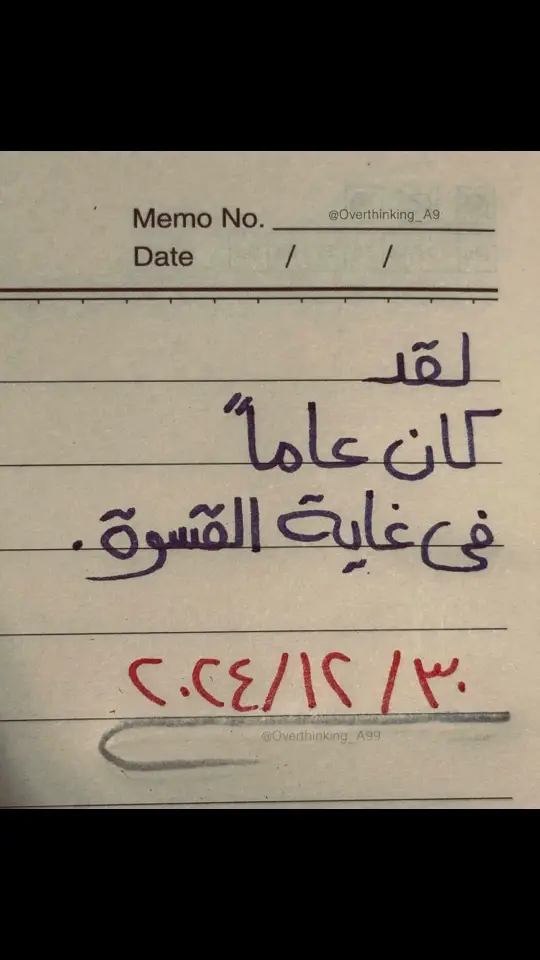 Memo No. @Overthinking_A9
Date / /
لقد
كان عاماً
فى غاية القسوة.
٣٠/١٢/٢٠٢٤
@Overthinking_A99